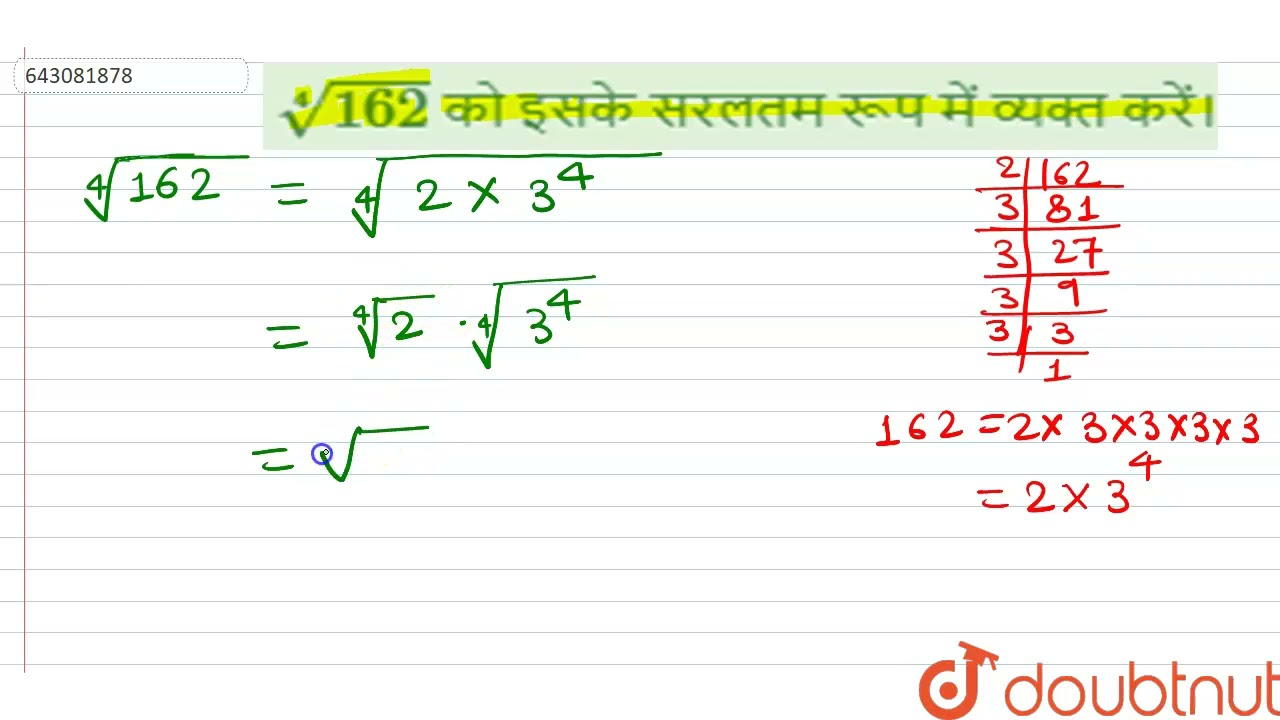 643081878
∜162 को इसके सरलतम रूप में व्यक्त करें।
∜162 = ∜(2 × 3⁴)
= ∜2 · ∜(3⁴)
= √
2 | 162
3 | 81
3 | 27
3 | 9
3 | 3
1
162 = 2 × 3 × 3 × 3 × 3
= 2 × 3⁴
doubtnut